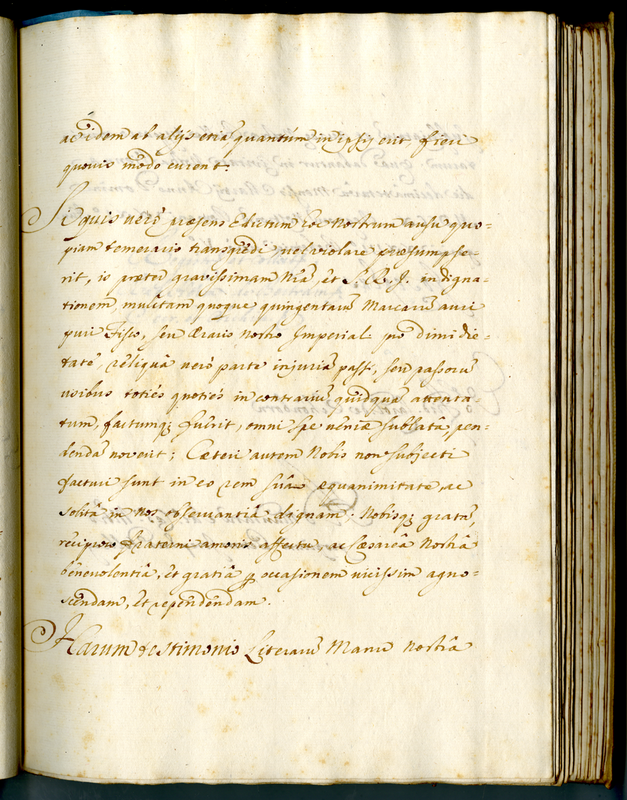 ac idem ab alijs etiā quantum in ipsis erit, fieri
quovis modo curent.
Si quis verò præsens Edictum hoc Nostrum ausu quo=
piam temerario transgredi vel violare præsumpse=
rit, is præter gravissimam Nrā, et S. R. J. indigna=
tionem, mulctam quoque quingentarū Marcarū auri
puri Fisco, seu Ærario Nostro Imperial. pro dimidie=
tate, reliquā verò parte injuriā pass. seu passorū
usibus toties quoties in contrariū quidquā attenta=
tum, factumq; fuerit, omni spe veniæ sublatâ, pen=
dendā noverit; Cæteri autem Nobis non subjecti
facturi sunt in eo rem suâ æquanimitate, ac
solitâ in Nos observantiâ dignam; Nobisq; gratā,
reciproco fraterni amoris affectu, ac Cæsareâ Nostrâ
benevolentiâ, et gratiâ p occasionem vicissim agno=
scendam, et rependendam.
Harum testimonio Literarū Manu Nostrâ